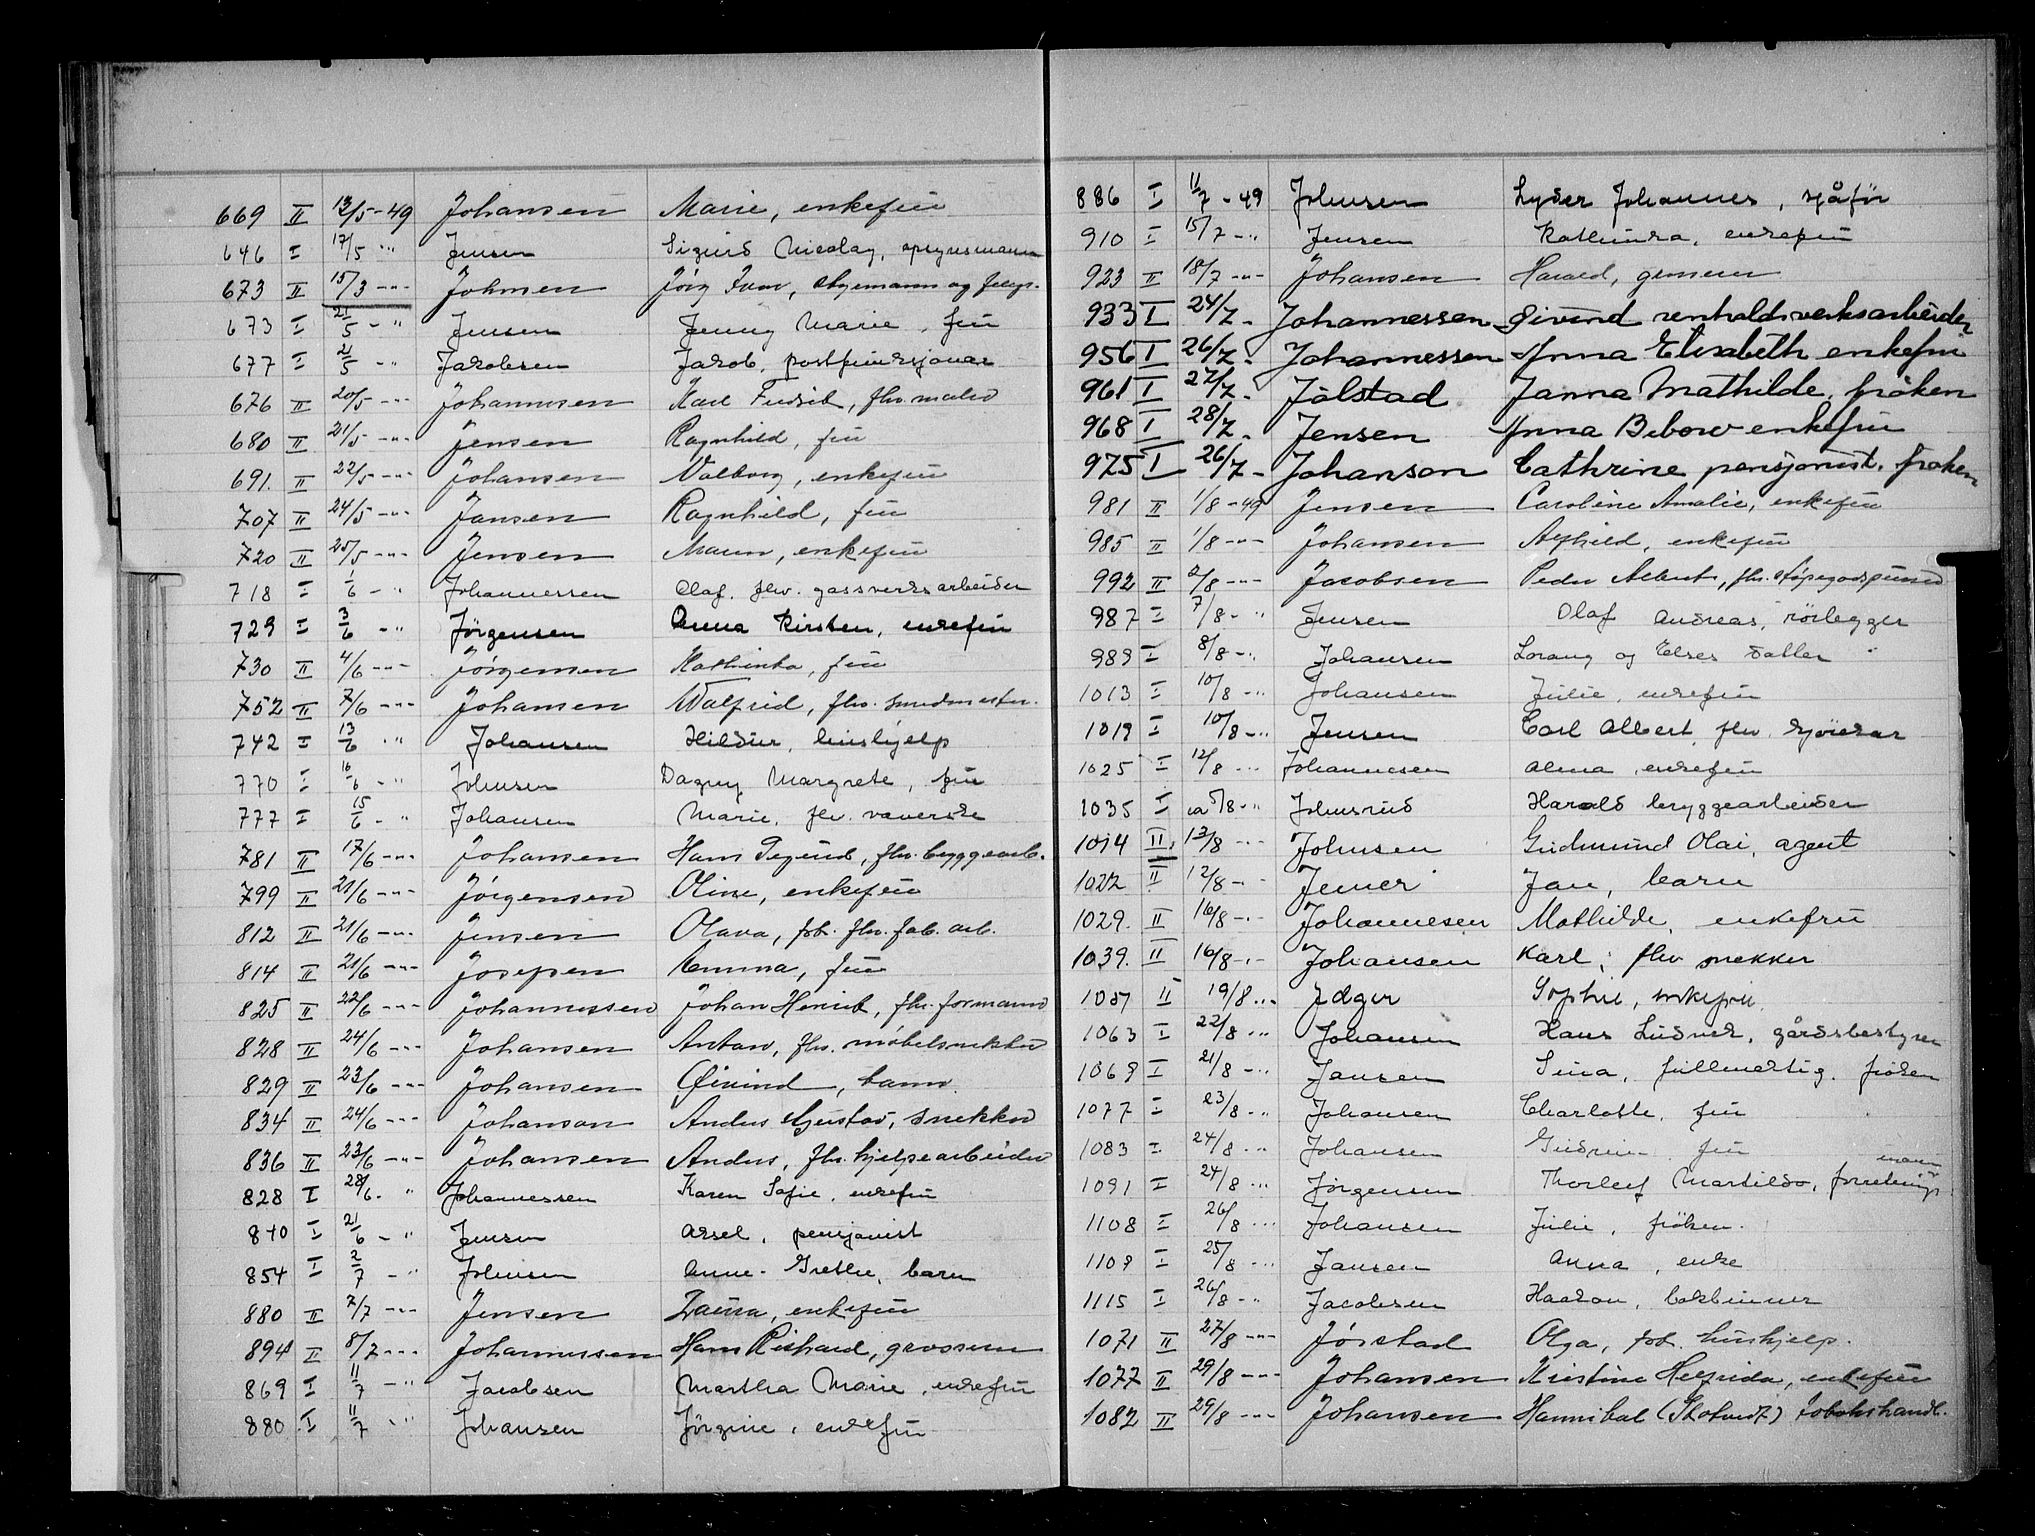 669 II 13/5-49 Johansen Marie, enkefru
646 I 17/5 -"- Jensen Sigurd Nicolay, opsynsmann
673 II 15/3 -"- Johnsen Jörg Ivar, styrmann og
673 I 21/5 -"- Jensen Jenny Marie, fru
677 I 21/5 -"- Jakobsen Jakob, postpensjonær
676 II 20/5 -"- Johannesen Karl Fredrik, fhv. maler
680 II 21/5 -"- Jensen Ragnhild, fru
691. II 22/5 -"- Johansen Valborg, enkefru
707 II 24/5 -"- Jansen Ragnhild, fru
720 II 25/5 -"- Jensen Maren, enkefru
718 I 1/6 -"- Johannessen Olaf, fhv. gassverksarbeider
729 I 3/6 -"- Jörgensen Anna Kirsten, enkefru
730 II 4/6 -"- Jörgensen Kathinka, fru
752 II 7/6 -"- Johansen Walfrid, fhv. smedmester.
742 I 13/6 -"- Johansen Hildur, hushjelp
770 I 16/6 -"- Johnsen Dagny Margrete, fru
777 I 15/6 -"- Johansen Marie, fhv. væverske
781 II 17/6 -"- Johansen Hans Sigurd, fhv. byggearb.
799 II 21/6 -"- Jörgensen Oline, enkefru
812 II 21/6 -"- Jensen Olava, frk. fhv. fab. arb.
814 II 21/6 -"- Josepsen Emma, fru
825 II 22/6 -"- Johannessen Johan Henrik, fhv. formann
828 II 24/6 -"- Johansen Anton, fhv. möbelsnekker
829 II 23/6 -"- Johansen Øivind, barn
834 II 24/6 -"- Johanson Anders Gustav, snekker
836 II 23/6 -"- Johansen Anders, fhv. hjelpearbeider
828 I 28/6. " Johannessen Karen Sofie, enkefru
840 I 21/6 -"- Jensen Aksel, pensjonist
854 I 2/7 -"- Johnsen Anne-Grethe, barn
880 II 7/7 -"- Jensen Laura, enkefru
894 II 8/7 -"- Johannessen Hans Rishard, grosserer
869 I 11/7 -"- Jacobsen Martha Marie, enkefru
880 I 11/7 -"- Johansen Jörgine, enkefru
886 I 11/7-49 Johnsen Lyder Johannes, sjåför
910 I 15/7 -"- Jensen Kathinka, enkefru
923 II 18/7 -"- Johansen Harald, grosserer
933 I 24/7- Johannessen Øivind renholdsverksarbeider
956 I 26/7- Johannessen Anna Elisabeth enkefru
961 I 27/7- Jölstad Janna Mathilde, fröken
968 I 28/7- Jensen Anna Bebow enkefru
975 I 26/7- Johanson Cathrine pensjonist, fröken
981 II 1/8-49 Jensen Caroline Amalie, enkefru
985 II 1/8 -"- Johansen Alfhild, enkefru
992 II 2/8 -"- Jacobsen Peder Albert, fhv. støpegodspusser
987 I 7/8 -"- Jensen Olaf Andreas, rörlegger
989 I 8/8 -"- Johansen Lorang og Elses datter
1013 I 10/8 -"- Johansen Julie, enkefru
1019 I 10/8 -"- Jensen Carl Albert, fhv.
1025 I 12/8 -"- Johannesen Alma, enkefru
1035 I ca 5/8 -"- Johnsrud Harald bryggearbeider
1014 II 13/8 -"- Johnsen Gudmund Olai, agent
1022 II 12/8 -"- Jenner Jan, barn
1029. II 16/8 -"- Johannesen Mathilde, enkefru
1039. II 16/8 -"- Johansen Karl, fhv snekker
1037 II 19/8 -"- Jæger Sophie, enkefru
1063 I 22/8 -"- Johansen Hans Ludvik, gårdsbestyrer
1069 I 21/8 -"- Jansen Sina, fullmektig, fröken
1077 I 23/8 -"- Johansen Charlotte, fru
1083 I 24/8 -"- Johansen Gudrun fru
1091 I 24/8 -"- Jörgensen Thorleif Martilso, forretningsmann
1108 I 26/8 -"- Johansen Julie, fröken.
1109 I 25/8 -"- Jansen Anna, enke
1115 I 26/8 -"- Jacobsen Haakon, bokbinner
1071 II 27/8 -"- Jörstad Olga, frk. hushjelp.
1077 II 29/8 -"- Johansen Kristine Helfrida, enkefru
1082 II 29/8 -"- Johansen Hannibal (Skotvedt) tobakshandl.